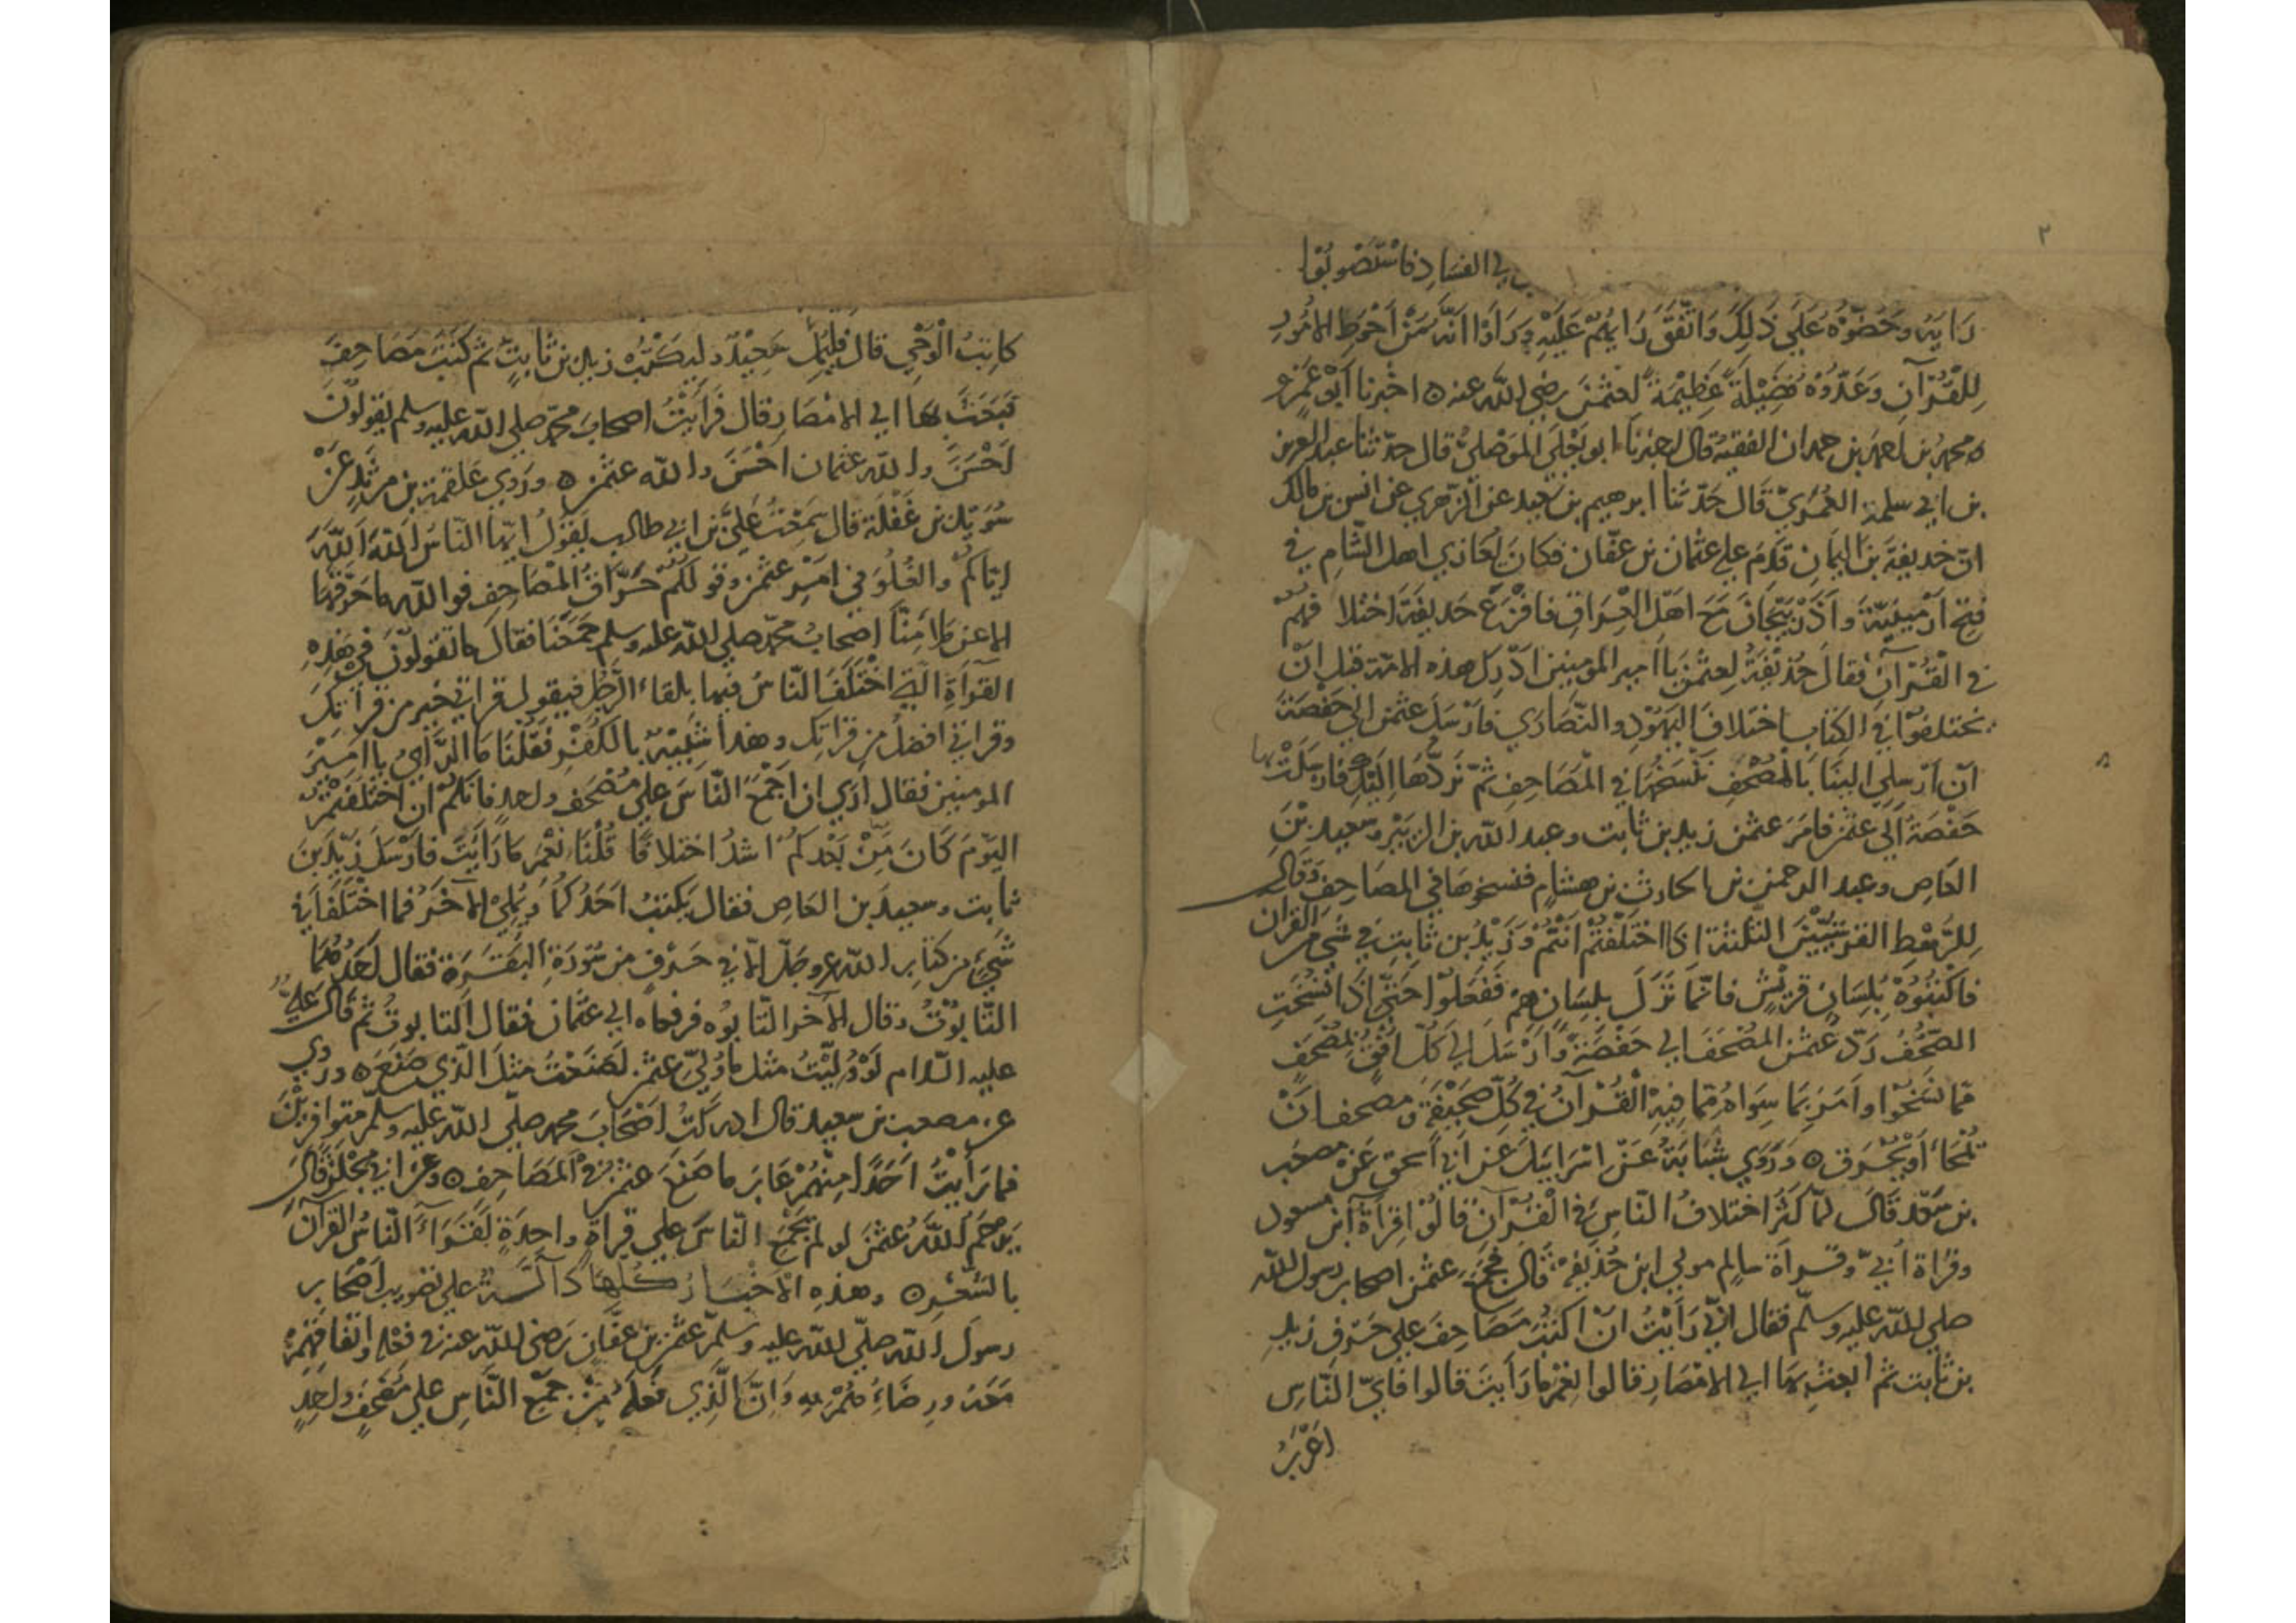 ٢
في الفساد فاستصوبوا
رايه وحضّوه على ذلك واتفق رايهم عليه وراوا انه من احوط الامور
للقرآن وعدّوه فضيلة عظيمة لعثمن رضي الله عنه ه اخبرنا ابو عمرو
ه محمد بن احمد بن حمدان الفقيه قال اخبرنا ابو يعلى الموصلي قال حدثنا عبد العزيز
بن ابي سلمة العمري قال حدثنا ابرهيم بن سعيد عن الزهري عن انس بن مالك
ان حذيفة بن اليمان قدم على عثمان بن عفان فكان يغازي اهل الشام في
فتح ارمينية واذربيجان مع اهل العراق فافزع حذيفة اختلافهم
في القرآن فقال حذيفة لعثمن يا امير المومنين ادرك هذه الامة قبل ان
يختلفوا في الكتاب اختلاف اليهود والنصاري فارسل عثمن الى حفصة
ان ارسلي الينا بالمصحف ننسخها في المصاحف ثم نردها اليك فارسلت بها
حفصة الى عثمن فامر عثمن زيد بن ثابت وعبد الله بن الزبير وسعيد بن
العاص وعبد الرحمن بن الحارث بن هشام فنسخوها في المصاحف وقال
للرهط القرشيين الثلثة اذا اختلفتم انتم وزيد بن ثابت في شي من القران
فاكتبوه بلسان قريش فانما نزل بلسانهم ففعلوا حتى اذا نسخت
الصحف ردّ عثمن المصحف الى حفصة وارسل الى كل افق بمصحف
مما نسخوا وامر بما سواه مما فيه القرآن في كل صحيفة ومصحف ان
تمحا او يحرق ه وروي شبابة عن اسرائيل عن ابي اسحق عن مصعب
بن سعد قال لما كثر اختلاف الناس في القرآن قالوا قراة ابن مسعود
وقراة أبيّ وقراة سالم مولى ابن حذيفة قال فجمع عثمن اصحاب رسول الله
صلى الله عليه وسلم فقال اني رايت ان اكتب مصاحف على حرف زيد
بن ثابت ثم ابعث بها الى الامصار قالوا نعم ما رايت قالوا فايّ الناس
اعرب
كاتب الوحي قال فليمل سعيد وليكتب زيد بن ثابت ثم كتب مصاحف
فبعث بها الى الامصار قال فرايت اصحاب محمد صلى الله عليه وسلم يقولون
احسن والله عثمان احسن والله عثمن ه وروي علقمة بن مرثد عن
سويد بن غفلة قال سمعت علي بن ابي طالب يقول ايها الناس الله الله
اياكم والغلو في امر عثمن وقولكم حرّاق المصاحف فوالله ما حرقها
الا عن ملا منا اصحاب محمد صلى الله عليه وسلم جمعنا فقال ما تقولون في هذه
القراة التي اختلف الناس فيها يلقاء الرجل فيقول قراتي خير من قراتك
وقراتي افضل من قراتك وهذا شبيه بالكفر فقلنا ما الراي يا امير
المومنين فقال اري ان اجمع الناس على مصحف واحد فانكم ان اختلفتم
اليوم كان من بعدكم اشد اختلافا قلنا نعم ما رايت فارسل زيد بن
ثابت وسعيد بن العاص فقال يكتب احدكما ويملي الآخر فما اختلفا في
شيء من كتاب الله عز وجل الا في حرف من سورة البقرة فقال احدهما
التابوت وقال الآخر التابوه فرفعاه الى عثمان فقال التابوت ثم قال علي
عليه السلام لو وليت مثل ما ولي عثمن لصنعت مثل الذي صنع ه وروي
عن مصعب بن سعيد قال ادركت اصحاب محمد صلى الله عليه وسلم متوافرين
فما رأيت احدا منهم عاب ما صنع عثمن في المصاحف ه وعن ابي مجلز قال
يرحم الله عثمن لو لم يجمع الناس على قراة واحدة لقراء الناس القرآن
بالشعر ه وهذه الاخبار كلها دآلة على تصويب اصحاب
رسول الله صلى الله عليه وسلم عثمن بن عفان رضي الله عنه في فعله واتفاقهم
معه ورضاءهم به وان الذي فعله من جمع الناس على مصحف واحد